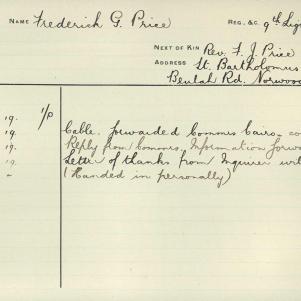 NAME Frederick G. Price REG. &C. 9th Lig
NEXT OF KIN Rev. F. J. Price
ADDRESS St. Bartholomews
Beulah Rd. Norwood
19. 1/0
19. Cable. forwarded Commrs Cairo - co
19. Reply from Commrs, Information forw
19. Letter of thanks from Inquirer wri
" (Handed in personally)